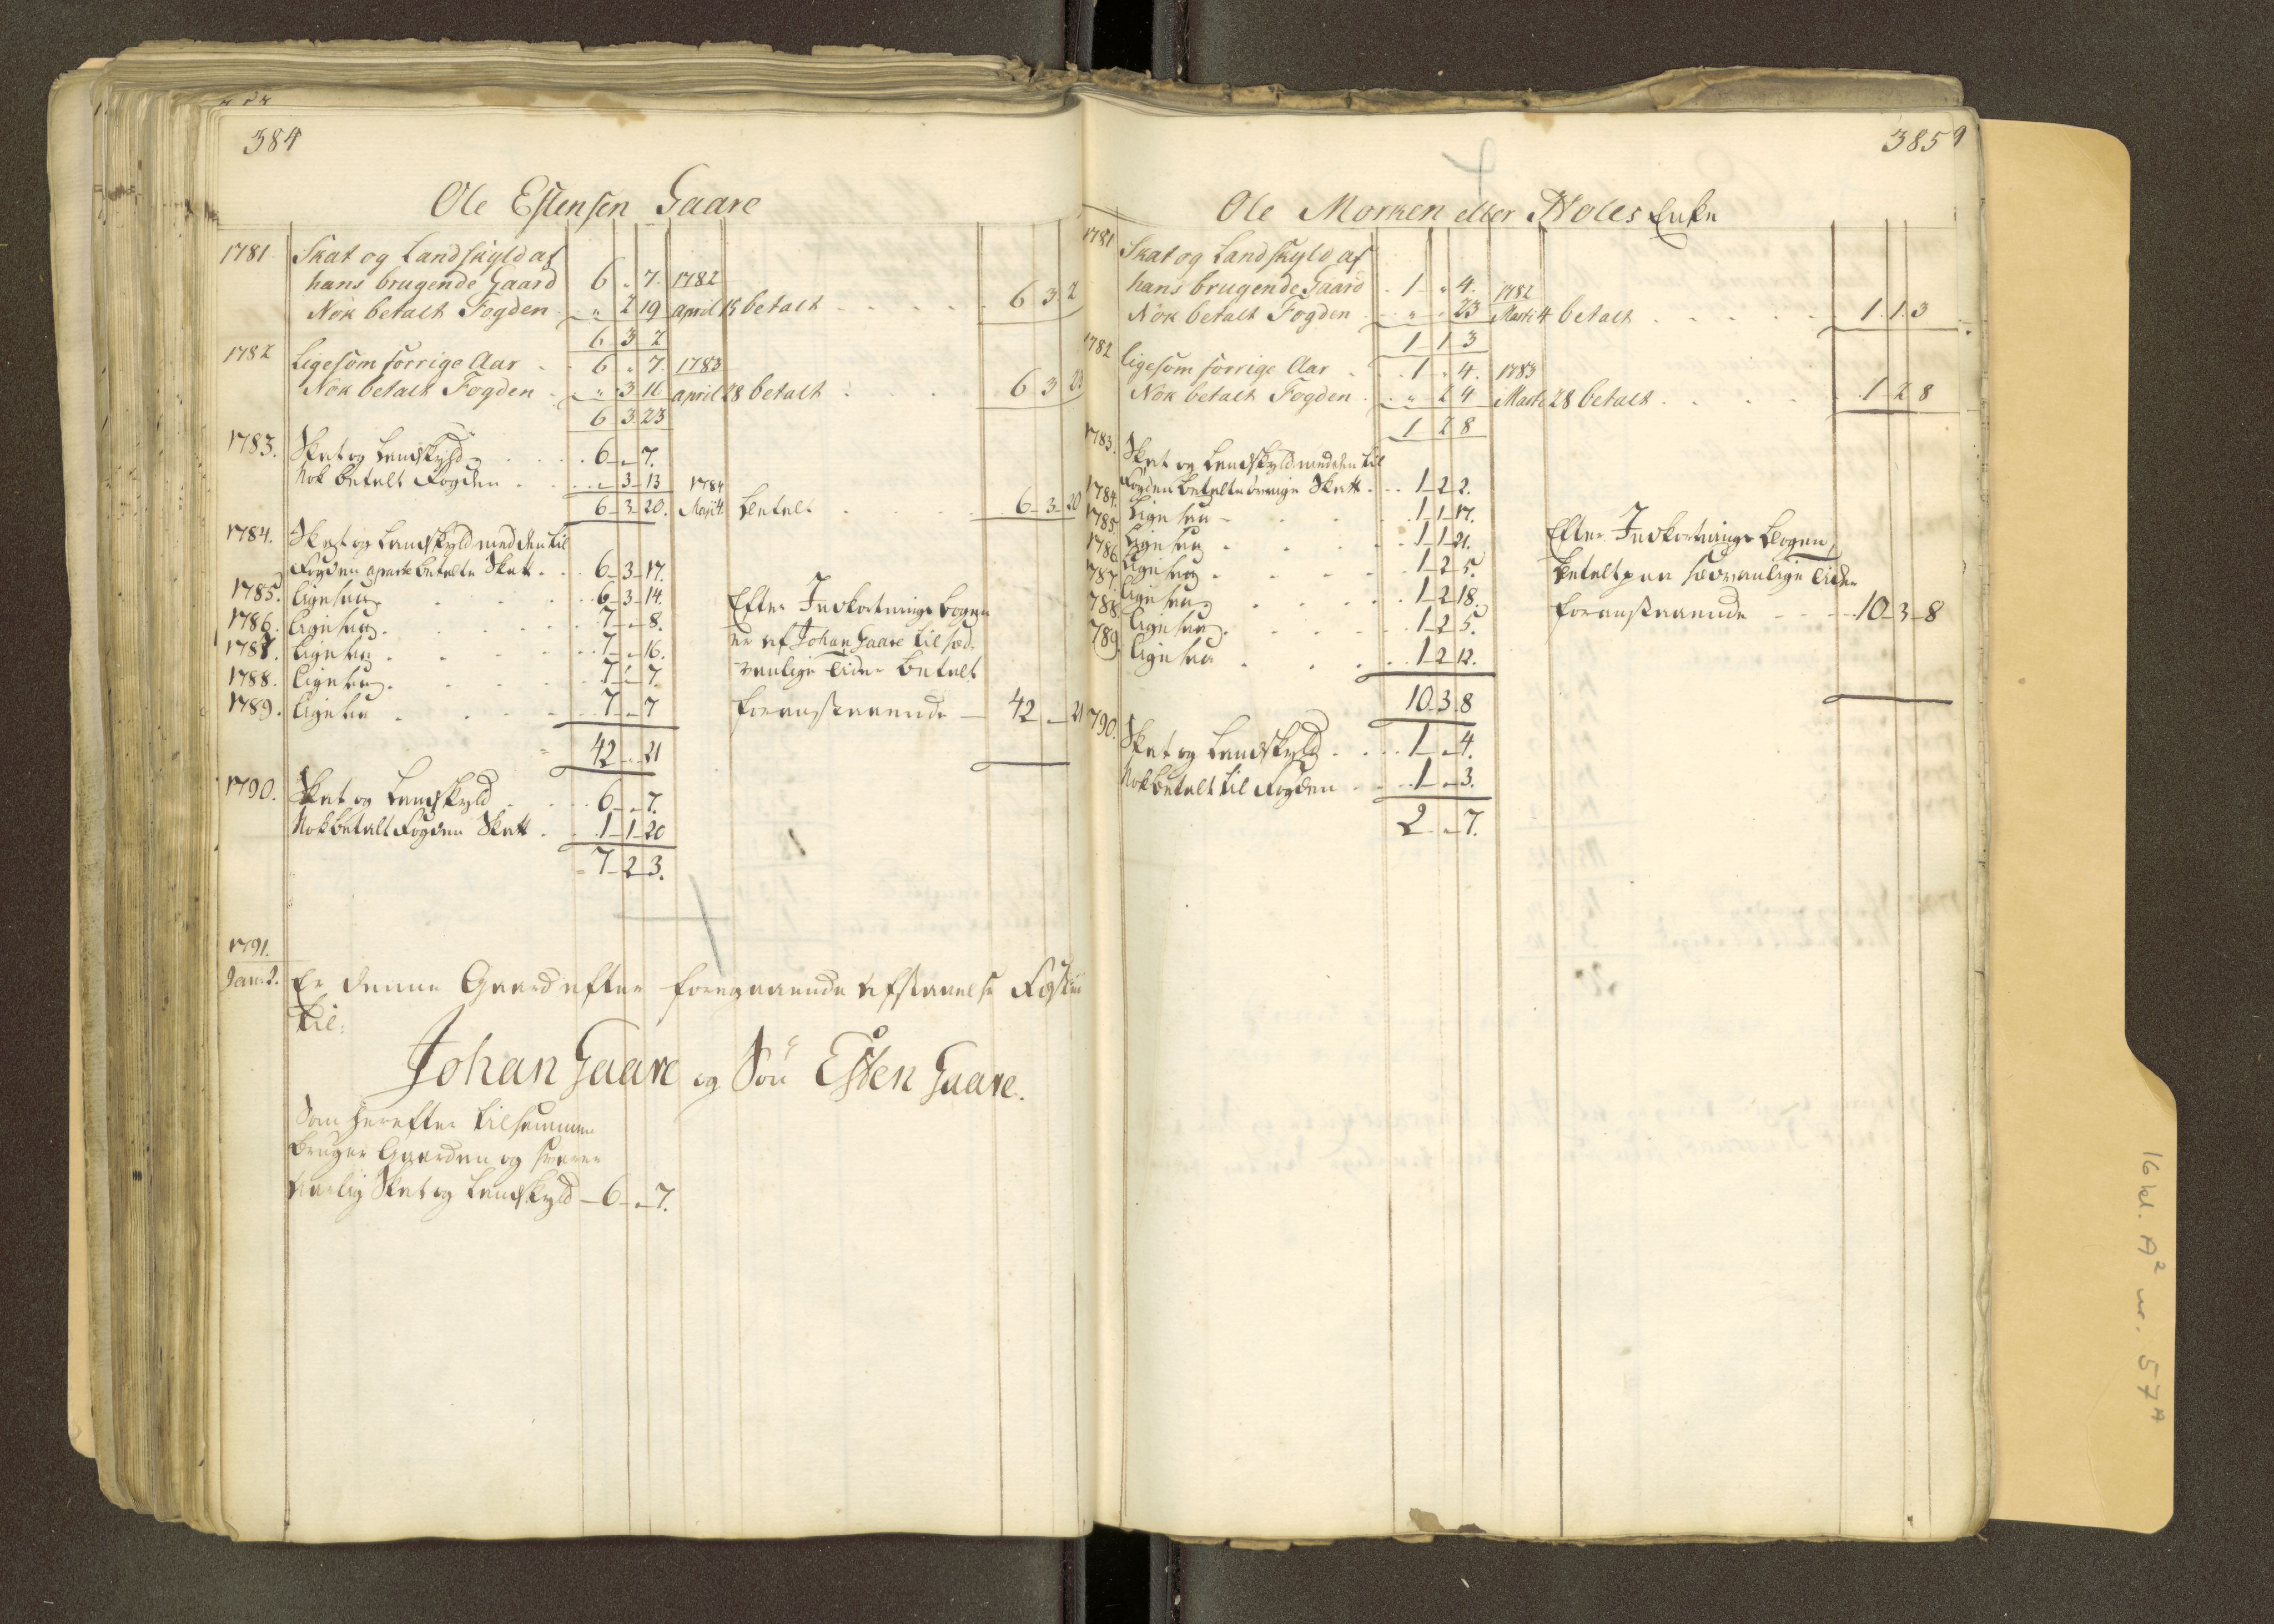 384
Ole Estensen Gaare
1781 Skat og Landskyld af
hans brugende Gaard 6 „ 7. 1782
Nok betalt Fogden „ 2 19 april 15 betalt 6 3 2
6 3 2
1782 Ligesom forrige Aar 6 „ 7. 1783
Nok betalt Fogden „ 3 16 april 28 betalt 6 3 23
6 3 23
1783. Skat og Landskyld 6 „ 7.
Nok betalt Fogden „ 3 13 1784
6 3 20. Maji 4 betalt 6 3 20
1784. Skat og Landskyld med den til
Fogden aparte betalte Skatt 6 3 17.
1785. Ligesaa 6 3 14.
1786. Ligesaa 7 „ 8.
1787. Ligesaa 7 „ 16.
1788. Ligesaa 7 „ 7.
1789. Ligesaa 7 „ 7
Efter Indkortnings bogen
er af Johan Gaare til sæd-
vanlige tider betalt
foranstaaende 42 „ 21
42 „ 21
1790. Skat og Landskyld 6 „ 7.
Nok betalt Fogden Skatt 1 1 20
7 2 3.
1791.
Jan: 2. Er denne Gaard efter foregaaende afstaaelse
til:
Johan Gaare og Søn Esten Gaare.
Som herefter tilsammen
bruger Gaarden og svarer
aarlig Skat og Landskyld 6 „ 7.
385
Ole Morken eller Holes Enke
1781 Skat og Landskyld af
hans brugende Gaard 1 „ 4. 1782
Nok betalt Fogden „ „ 23 Marti 4 betalt 1 1 3
1 1 3
1782 Ligesom forrige Aar 1 „ 4. 1783
Nok betalt Fogden „ 2 4 Marti 28 betalt 1 2 8
1 2 8
1783. Skat og Landskyld med den til
Fogden betalte øvrige Skatt 1 2 2.
1784. Ligesaa 1 1 17.
1785. Ligesaa 1 1 21.
1786. Ligesaa 1 2 5.
1787. Ligesaa 1 2 18.
788. Ligesaa 1 2 5.
789. Ligesaa 1 2 12.
Efter Indkortnings Bogen
betalt paa sædvanlige tider
foranstaaende 10 3 8
10 3 8
790. Skat og Landskyld 1 „ 4.
Nok betalt til Fogden 1 „ 3.
2 „ 7.
16 kl. A² nr. 57ᴬ